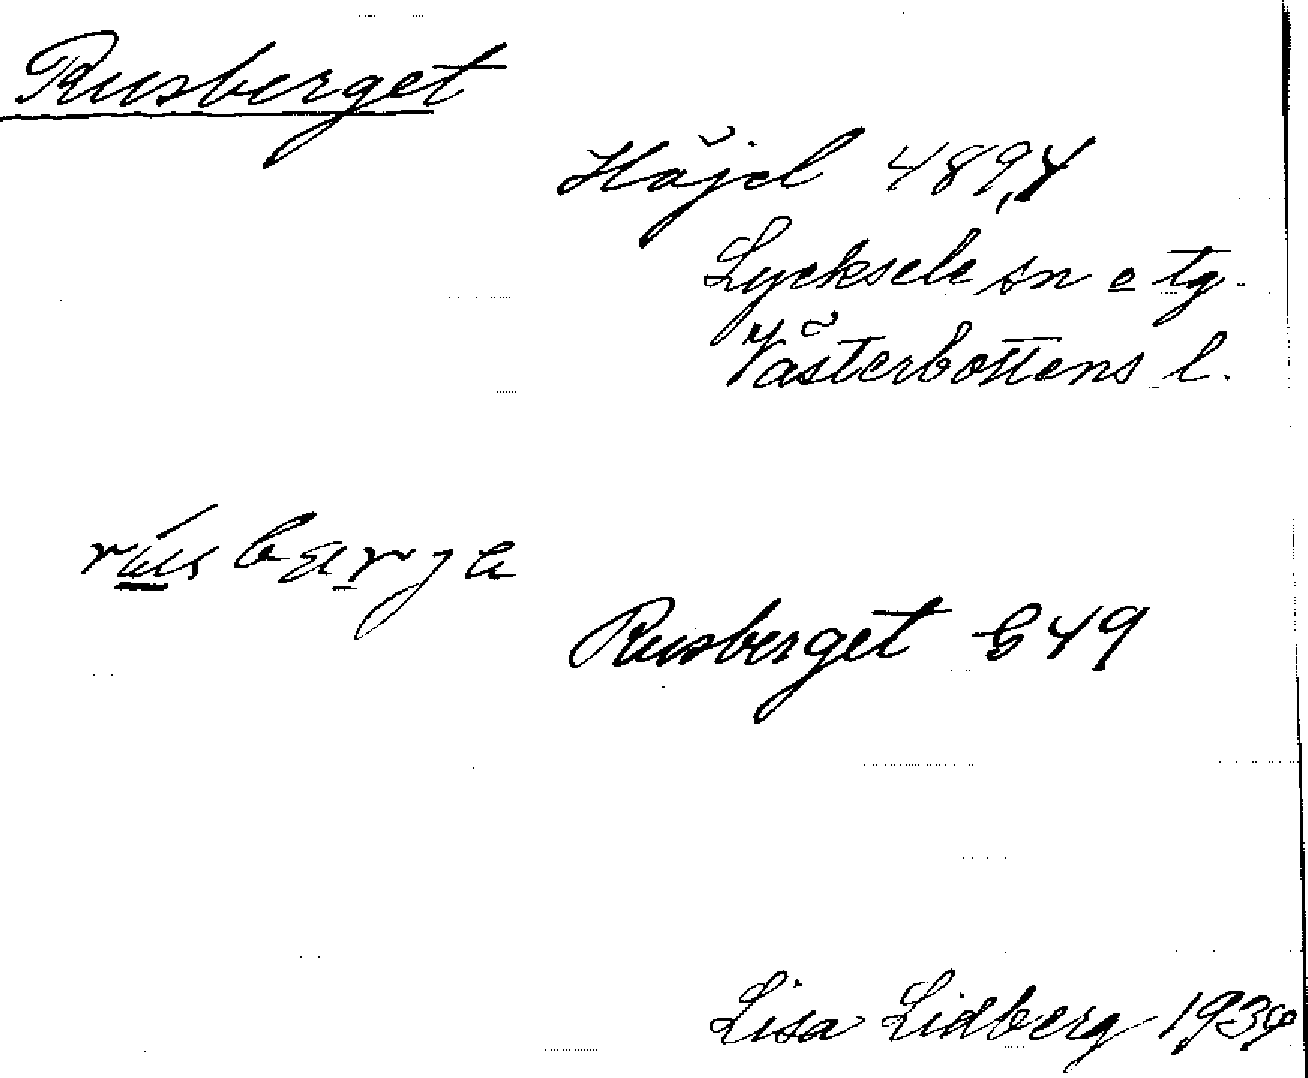 Rusberget
Höjd 489,4
Lycksele sn o tg.
Västerbottens l.
Rusberget G49
Lisa Lidberg 193